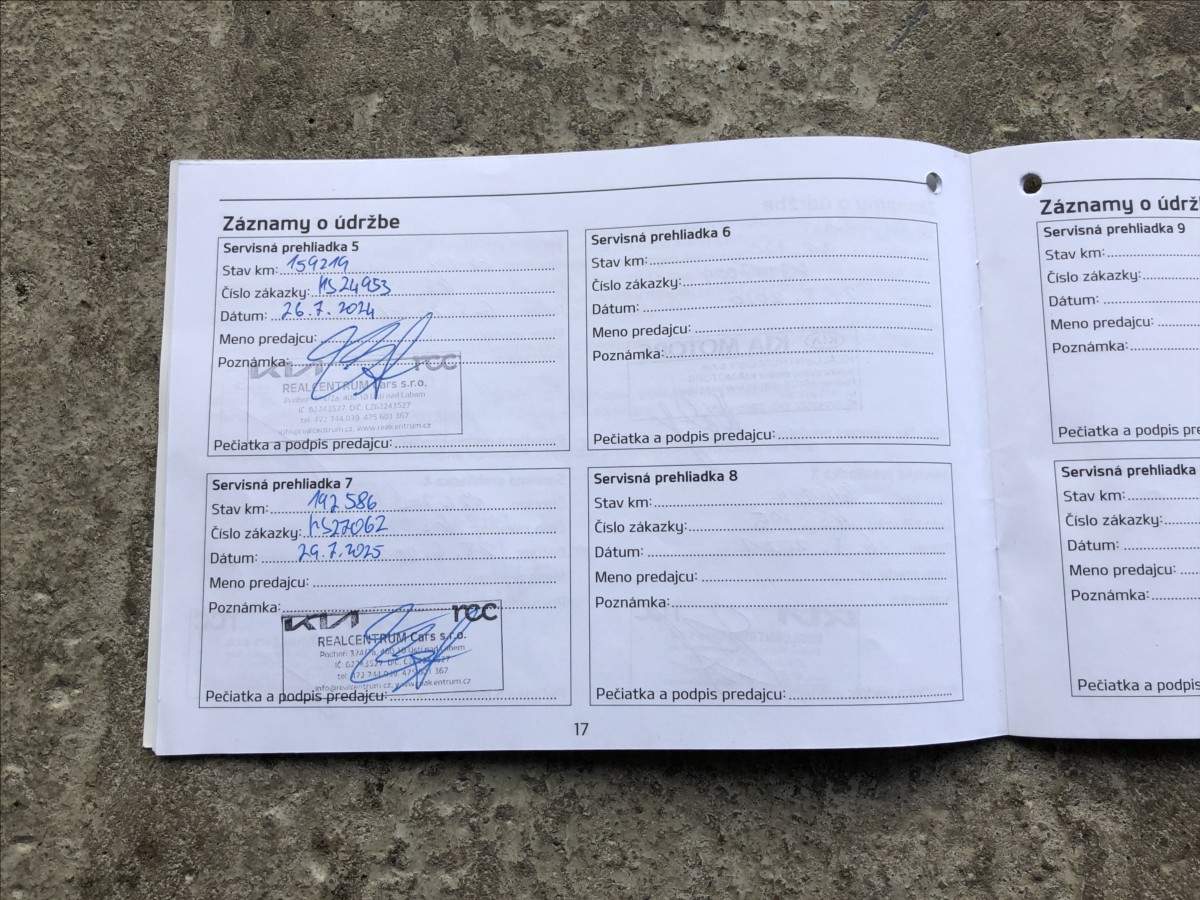 Záznamy o údržbe
Servisná prehliadka 5
Stav km: 159219
Číslo zákazky: HS24953
Dátum: 26.7.2024
Meno predajcu:
Poznámka:
KIA rcc
REALCENTRUM Cars s.r.o.
400 10 Ústí nad Labem
IČ: 62243527, DIČ: CZ62243527
tel: 472 744 039, 475 601 367
www.realcentrum.cz
Pečiatka a podpis predajcu:
Servisná prehliadka 6
Stav km:
Číslo zákazky:
Dátum:
Meno predajcu:
Poznámka:
Pečiatka a podpis predajcu:
Servisná prehliadka 7
Stav km: 192586
Číslo zákazky: HS27062
Dátum: 29.7.2025
Meno predajcu:
Poznámka:
KIA rcc
REALCENTRUM Cars s.r.o.
info@realcentrum.cz, www.realcentrum.cz
Pečiatka a podpis predajcu:
Servisná prehliadka 8
Stav km:
Číslo zákazky:
Dátum:
Meno predajcu:
Poznámka:
Pečiatka a podpis predajcu:
17
Záznamy o údrž
Servisná prehliadka 9
Stav km:
Číslo zákazky:
Dátum:
Meno predajcu:
Poznámka:
Pečiatka a podpis pre
Servisná prehliadka
Stav km:
Číslo zákazky:
Dátum:
Meno predajcu:
Poznámka:
Pečiatka a podpis